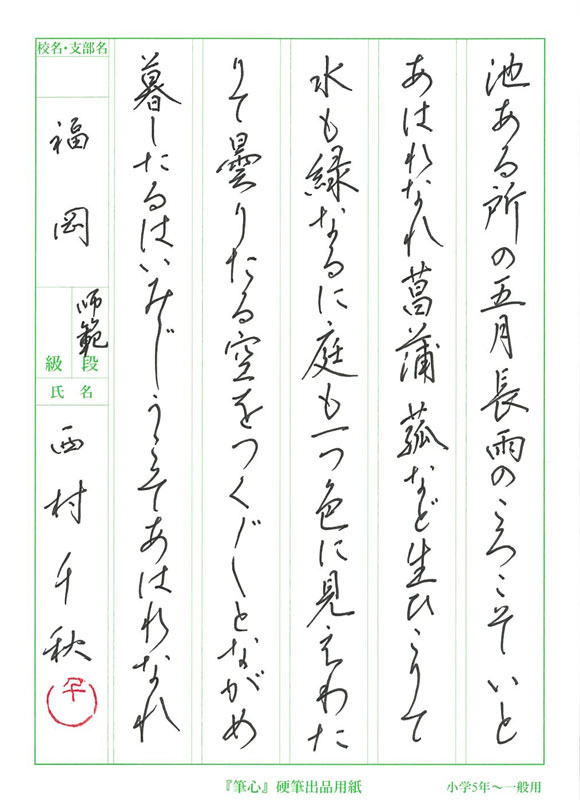 池ある所の五月長雨のころこそいと
あはれなれ菖蒲菰など生ひこりて
水も緑なるに庭も一つ色に見えわた
りて曇りたる空をつく〴〵とながめ
暮したるはいみじうこそあはれなれ
校名・支部名
福岡
師範
級段
氏名
西村千秋
千
『筆心』硬筆出品用紙
小学5年〜一般用